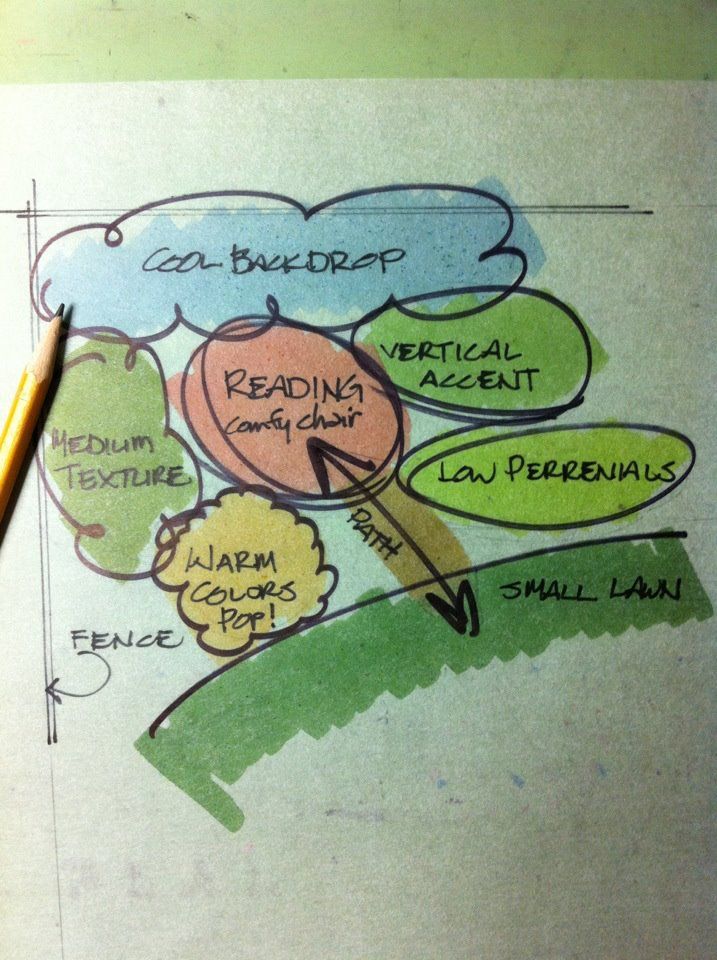 COOL BACKDROP
VERTICAL
ACCENT
READING
comfy chair
MEDIUM
TEXTURE
LOW PERRENIALS
PATH
WARM
COLORS
POP!
SMALL LAWN
FENCE